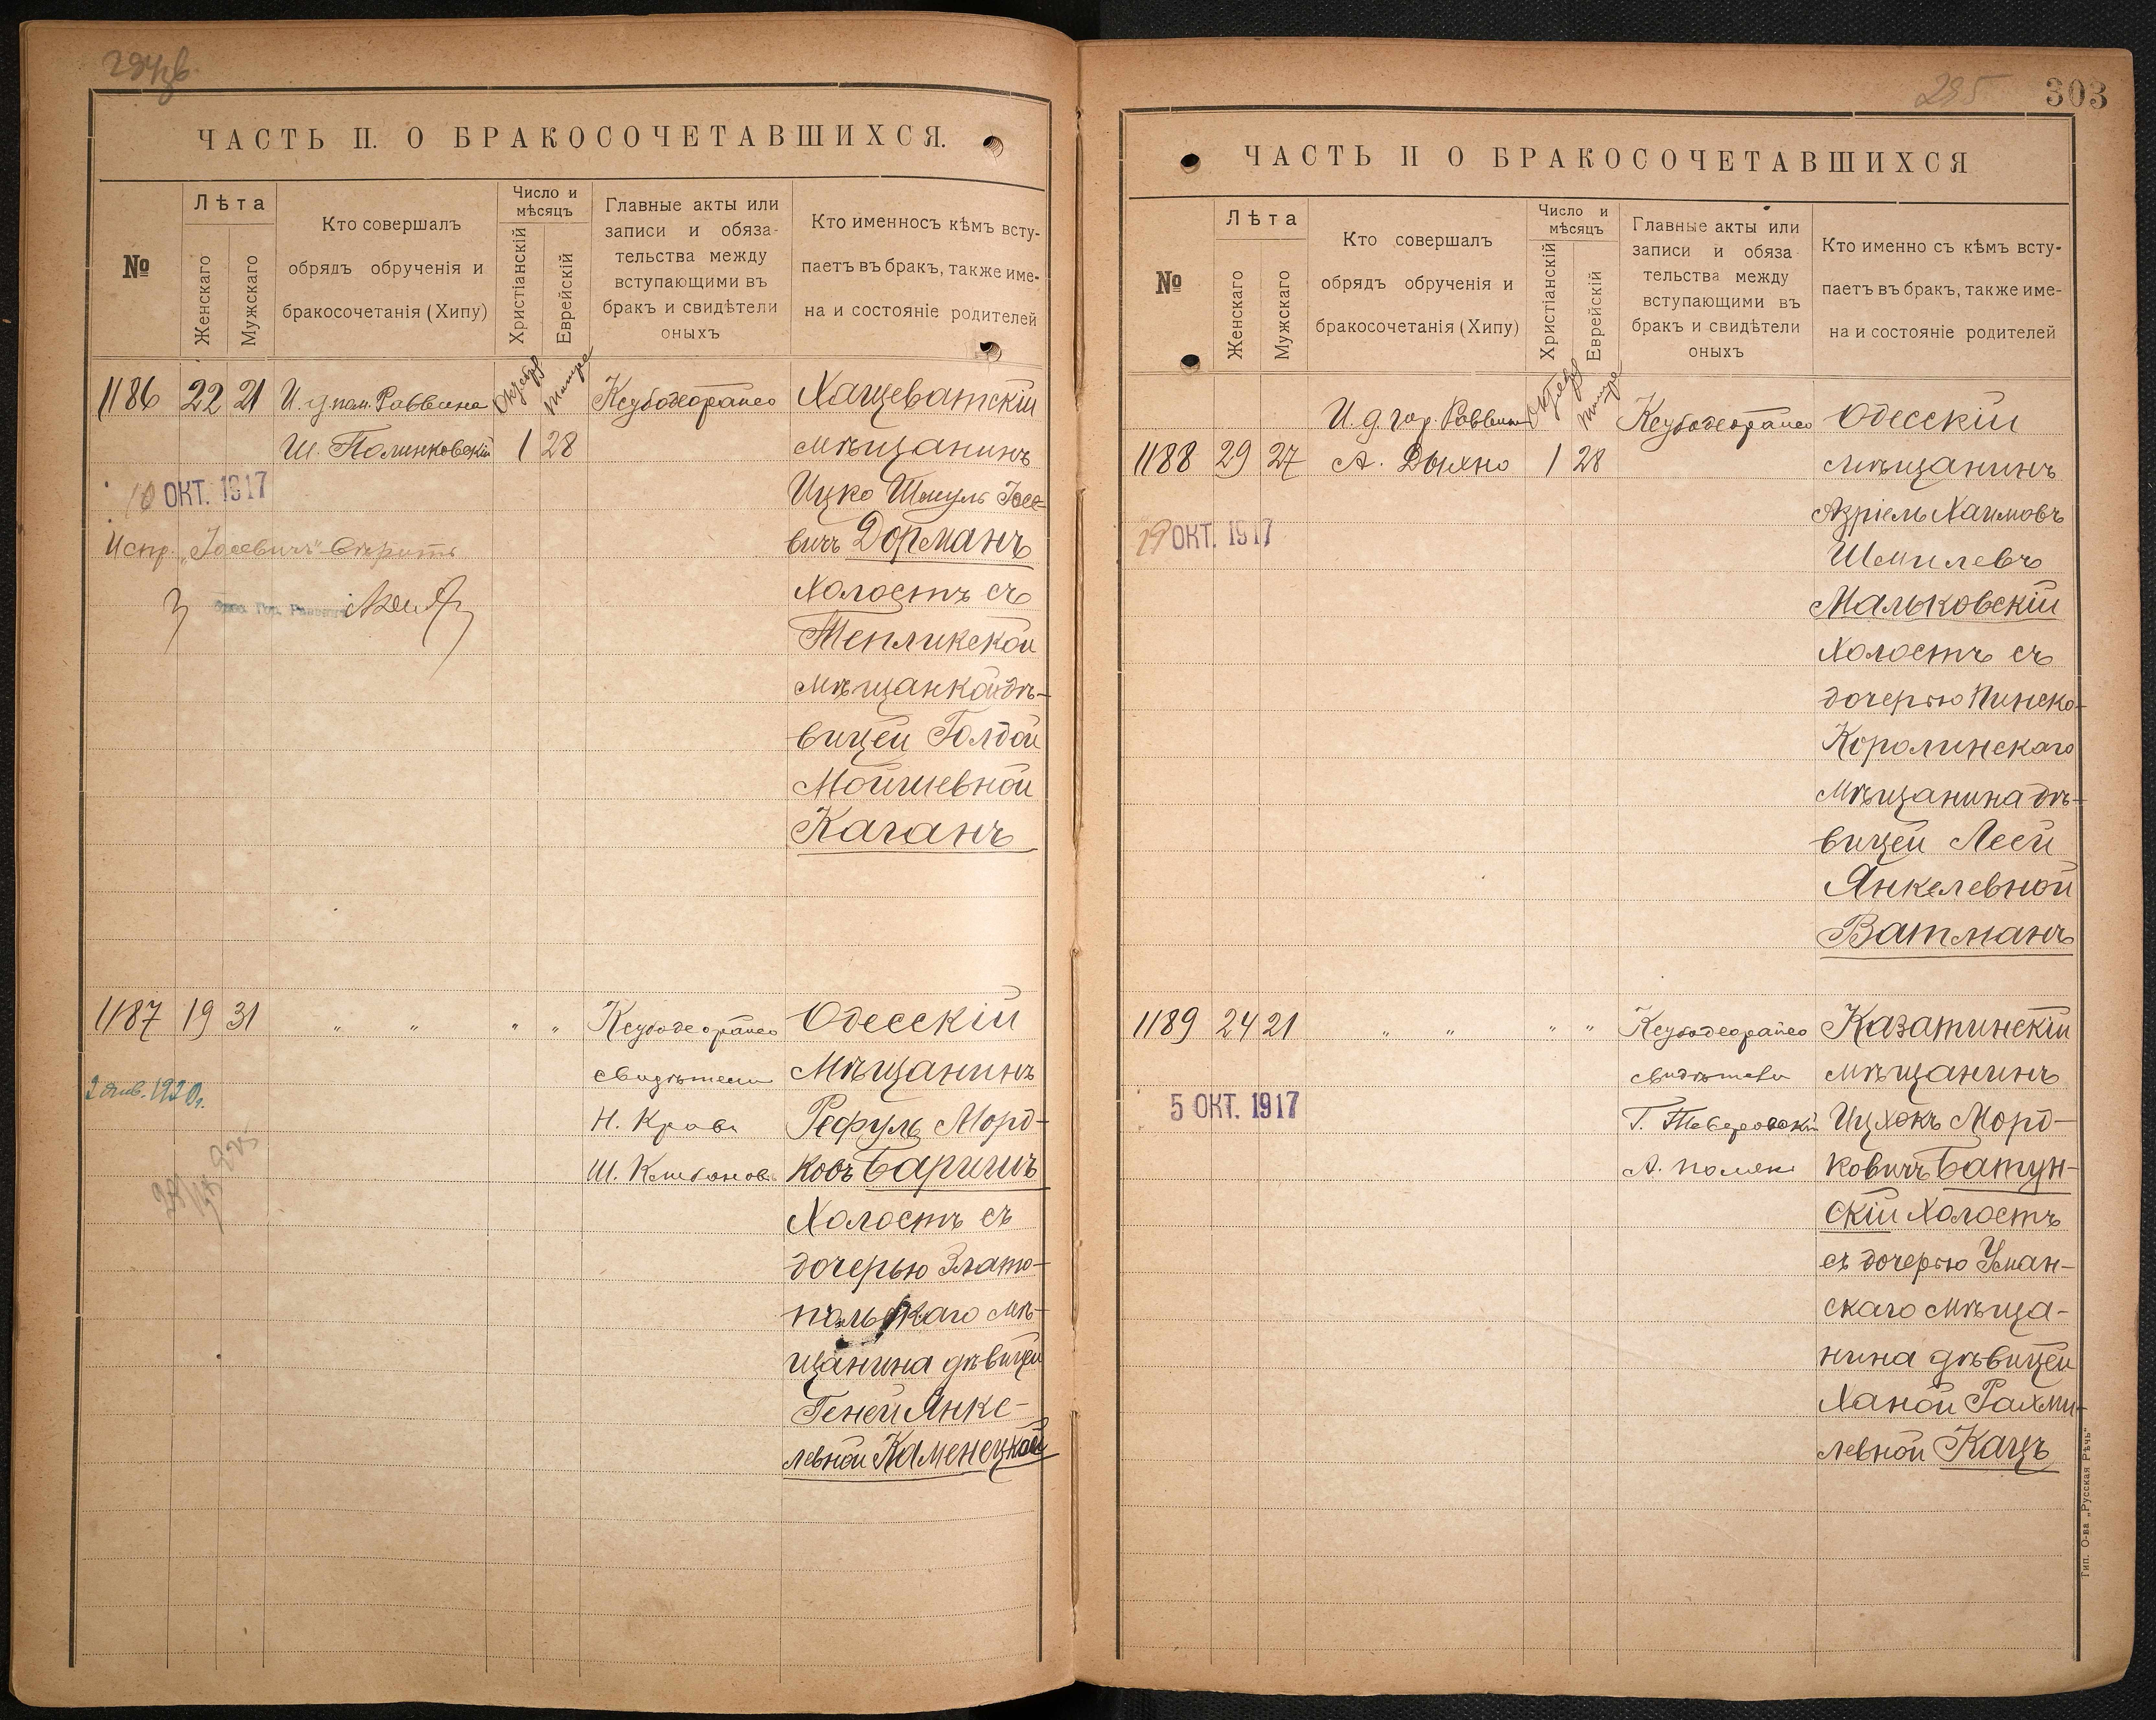 303
295
ЧАСТЬ II. О БРАКОСОЧЕТАВШИХСЯ.
№
Лѣта
Женскаго
Мужскаго
Кто совершалъ
обрядъ обрученія и
бракосочетанія (Хипу)
Число и
мѣсяцъ
Христіанскій
Еврейскій
Главные акты или
записи и обяза-
тельства между
вступающими въ
бракъ и свидѣтели
оныхъ
Кто именносъ кѣмъ всту-
паетъ въ бракъ, также име-
на и состояніе родителей
1186 22 21
Ш. Полинковскій
1 28
Хащеватскій
мѣщанинъ
Ицко Шмуль Іосе-
вичъ Дорманъ
Холостъ съ
Тепликской
мѣщанкой дѣ-
вицей Голдой
Мойшевной
Каганъ
10 ОКТ. 1917
Испр. „Іосевичъ"
1187 19 31 " " " "
свидѣтели
Одесскій
Мѣщанинъ
Рефуль Морд-
ковъ Баришъ
Холостъ съ
дочерью Злато-
польскаго мѣ-
щанина дѣвицей
Геней Янке-
левной Каменецкой
2 Янв. 1920 г.
ЧАСТЬ II О БРАКОСОЧЕТАВШИХСЯ
№
Лѣта
Женскаго
Мужскаго
Кто совершалъ
обрядъ обрученія и
бракосочетанія (Хипу)
Число и
мѣсяцъ
Христіанскій
Еврейскій
Главные акты или
записи и обяза-
тельства между
вступающими въ
бракъ и свидѣтели
оныхъ
Кто именно съ кѣмъ всту-
паетъ въ бракъ, также име-
на и состояніе родителей
И. д. гор. Раввина
1188 29 27
А. Дыхно
1 28
Одесскій
мѣщанинъ
Азріель Хаимовъ
Шмилевъ
Мальковскій
Холостъ съ
дочерью Пинско-
Королинскаго
мѣщанина дѣ-
вицей Леей
Янкелевной
Ватманъ
19 ОКТ. 1917
1189 24 21 " " " "
свидѣтели
Казатинскій
мѣщанинъ
Ицхокъ Морд-
ковичъ Батун-
скій Холостъ
съ дочерью Уман-
скаго мѣща-
нина дѣвицей
Ханой Рахми-
левной Кацъ
5 ОКТ. 1917
Тип. О-ва „Русская Рѣчь"